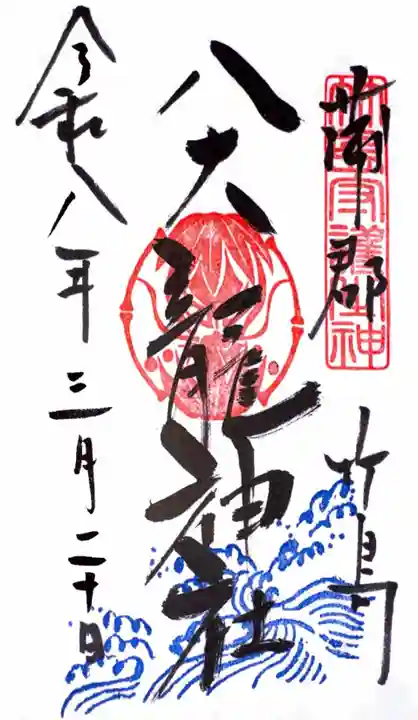 蒲郡
竹島
八大龍神社
令和八年三月二十日